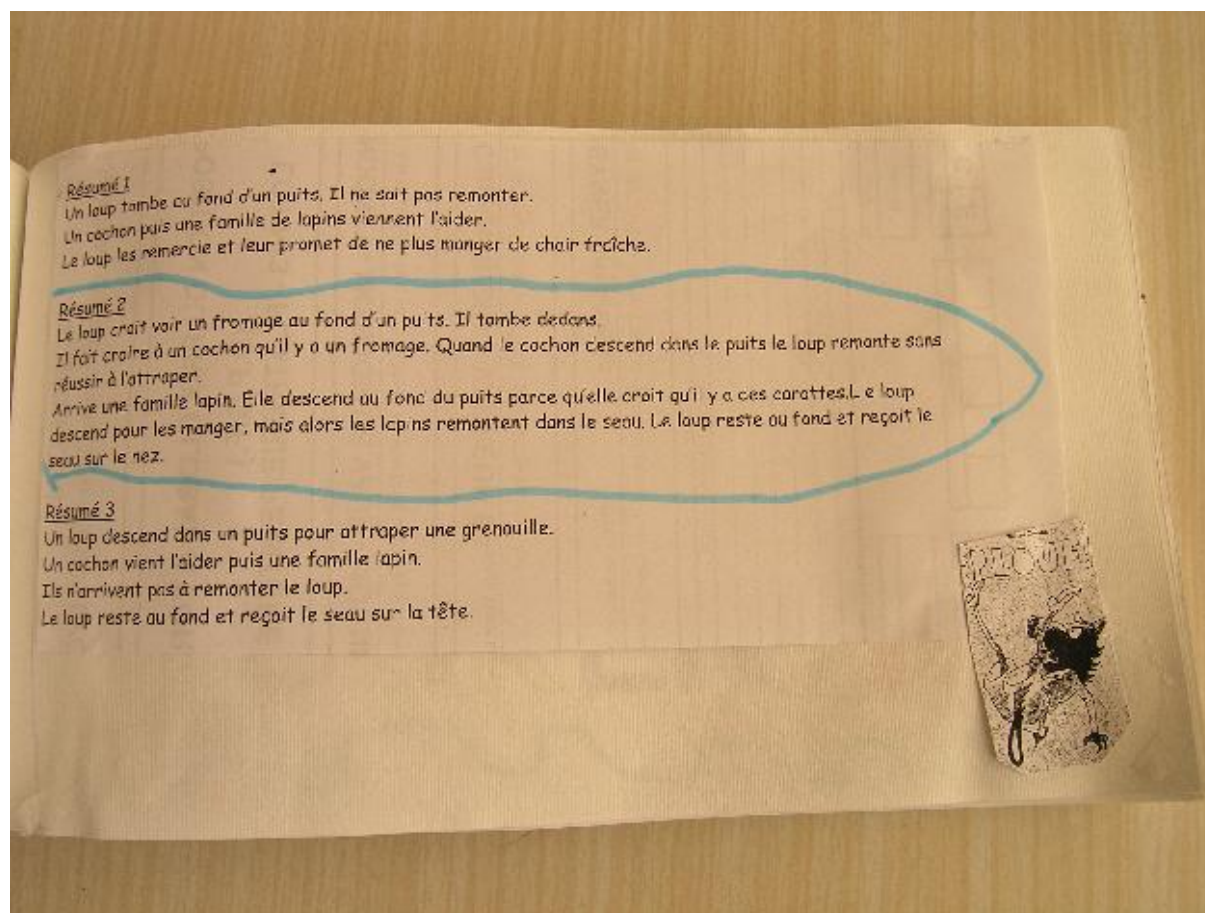 Résumé 1
Un loup tombe au fond d'un puits. Il ne sait pas remonter.
Un cochon puis une famille de lapins viennent l'aider.
Le loup les remercie et leur promet de ne plus manger de chair fraîche.
Résumé 2
Le loup croit voir un fromage au fond d'un puits. Il tombe dedans.
Il fait croire à un cochon qu'il y a un fromage. Quand le cochon descend dans le puits le loup remonte sans
réussir à l'attraper.
Arrive une famille lapin. Elle descend au fond du puits parce qu'elle croit qu'il y a des carottes.L e loup
descend pour les manger, mais alors les lapins remontent dans le seau. Le loup reste au fond et reçoit le
seau sur le nez.
Résumé 3
Un loup descend dans un puits pour attraper une grenouille.
Un cochon vient l'aider puis une famille lapin.
Ils n'arrivent pas à remonter le loup.
Le loup reste au fond et reçoit le seau sur la tête.